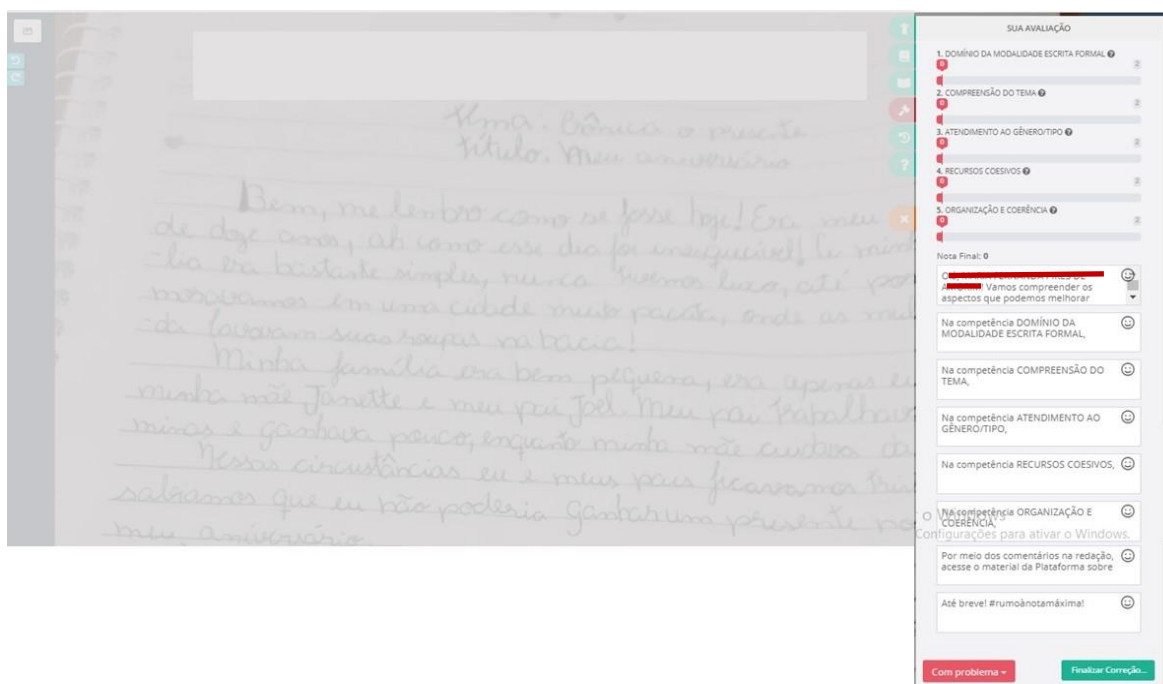 Título: Meu aniversário
Bem, me lembro como se fosse hoje! Era meu
de doze anos, ah como esse dia foi inesquecível!
-lia era bastante simples, nunca tivemos luxo, até
morávamos em uma cidade muito pacata, onde as
lavavam suas roupas na bacia!
Minha família era bem pequena, era apenas eu
minha mãe Janette e meu pai Joel. Meu pai trabalhava
minas e ganhava pouco, enquanto minha mãe cuidava da
Nessas circustâncias eu e meus pais ficavamos
sabíamos que eu não poderia ganhar um presente no
meu aniversário.
SUA AVALIAÇÃO
1. DOMÍNIO DA MODALIDADE ESCRITA FORMAL
0 2
2. COMPREENSÃO DO TEMA
0 2
3. ATENDIMENTO AO GÊNERO/TIPO
0 2
4. RECURSOS COESIVOS
0 2
5. ORGANIZAÇÃO E COERÊNCIA
0 2
Nota Final: 0
Vamos compreender os
aspectos que podemos melhorar
Na competência DOMÍNIO DA
MODALIDADE ESCRITA FORMAL,
Na competência COMPREENSÃO DO
TEMA,
Na competência ATENDIMENTO AO
GÊNERO/TIPO,
Na competência RECURSOS COESIVOS,
Na competência ORGANIZAÇÃO E
COERÊNCIA,
o Windows
Configurações para ativar o Windows.
Por meio dos comentários na redação,
acesse o material da Plataforma sobre
Até breve! #rumoànotamáxima!
Com problema
Finalizar Correção...